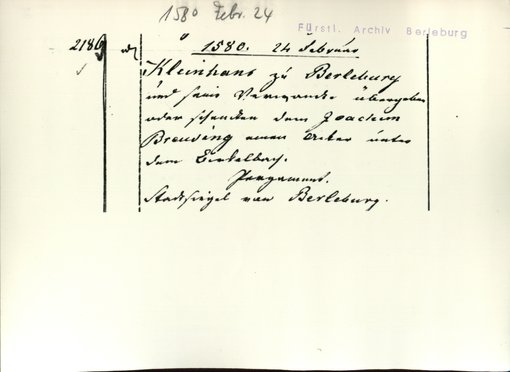 1580 Febr. 24
Fürstl. Archiv Berleburg
2186
1580. 24 Februar
Kleinhans zu Berleburg
und seine Verwandte übergeben
oder schenken dem Joachim
Breuding einen Acker unter
dem Eickelbach.
Pergament.
Stadtsiegel von Berleburg.